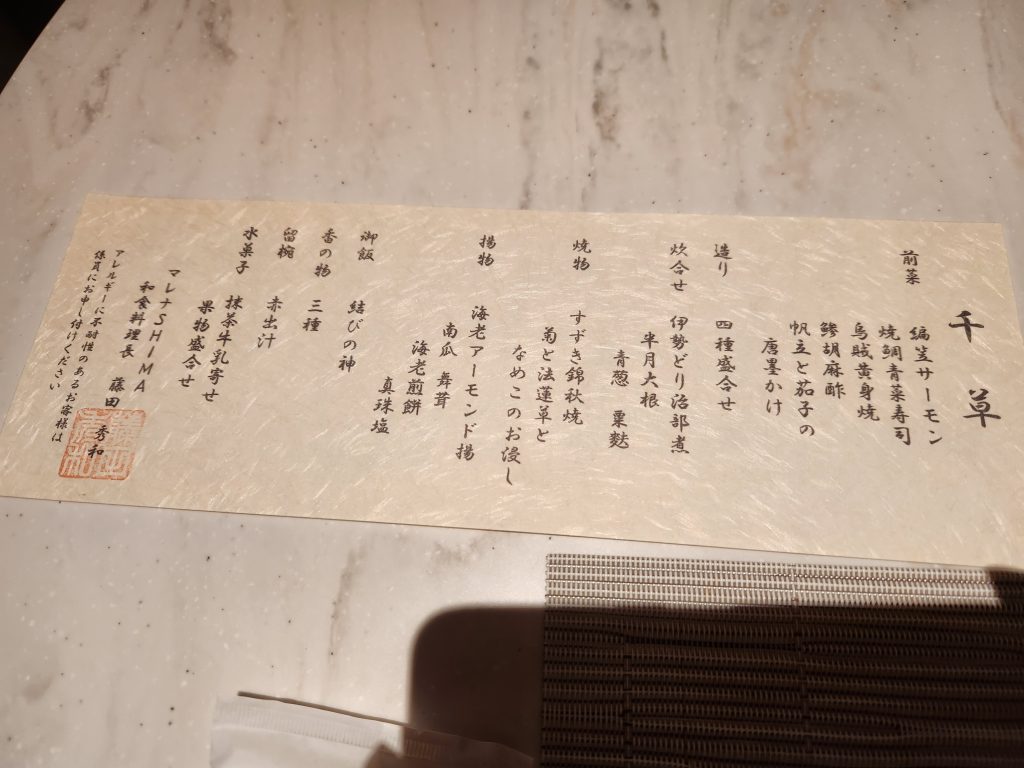 千草
前菜
編笠サーモン
焼鯛青菜寿司
烏賊黄身焼
鯵胡麻酢
帆立と茄子の
唐墨かけ
造り
四種盛合せ
炊合せ
伊勢どり治部煮
半月大根
青葱 粟麩
焼物
すずき錦秋焼
菊と法蓮草と
なめこのお浸し
揚物
海老アーモンド揚
南瓜 舞茸
海老煎餅
真珠塩
御飯
結びの神
香の物
三種
留椀
赤出汁
水菓子
抹茶牛乳寄せ
果物盛合せ
マレナSHIMA
和食料理長 藤田 秀和
アレルギーに不耐性のあるお客様は
係員にお申し付けください